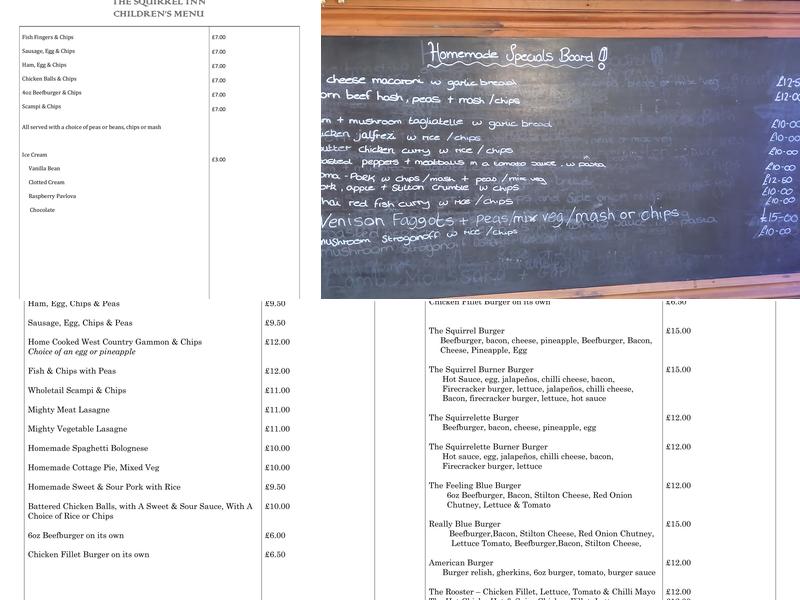 THE SQUIRREL INN
CHILDREN'S MENU
Fish Fingers & Chips £7.00
Sausage, Egg & Chips £7.00
Ham, Egg & Chips £7.00
Chicken Balls & Chips £7.00
4oz Beefburger & Chips £7.00
Scampi & Chips £7.00
All served with a choice of peas or beans, chips or mash
Ice Cream £3.00
Vanilla Bean
Clotted Cream
Raspberry Pavlova
Chocolate
Homemade Specials Board!
cheese macaroni w garlic bread £12-5
orn beef hash, peas + mash /chips £12-0
m + mushroom tagliatelle w garlic bread £10-00
icken jalfrezi w rice /chips £10-00
utter chicken curry w rice /chips £10-00
oasted peppers + meatballs in a tomato sauce, w pasta £10-00
oma -Pork w chips/mash + peas/mix veg £12-50
ork, apple + Stilton crumble w chips £10-00
hai red fish curry w rice /chips £10-00
Venison Faggots + peas/mix veg/mash or chips £15-00
mushroom Stroganoff w rice /chips £10-00
Ham, Egg, Chips & Peas £9.50
Sausage, Egg, Chips & Peas £9.50
Home Cooked West Country Gammon & Chips £12.00
Choice of an egg or pineapple
Fish & Chips with Peas £12.00
Wholetail Scampi & Chips £11.00
Mighty Meat Lasagne £11.00
Mighty Vegetable Lasagne £11.00
Homemade Spaghetti Bolognese £10.00
Homemade Cottage Pie, Mixed Veg £10.00
Homemade Sweet & Sour Pork with Rice £9.50
Battered Chicken Balls, with A Sweet & Sour Sauce, With A £10.00
Choice of Rice or Chips
6oz Beefburger on its own £6.00
Chicken Fillet Burger on its own £6.50
Chicken Fillet Burger on its own £6.50
The Squirrel Burger £15.00
Beefburger, bacon, cheese, pineapple, Beefburger, Bacon,
Cheese, Pineapple, Egg
The Squirrel Burner Burger £15.00
Hot Sauce, egg, jalapeños, chilli cheese, bacon,
Firecracker burger, lettuce, jalapeños, chilli cheese,
Bacon, firecracker burger, lettuce, hot sauce
The Squirrelette Burger £12.00
Beefburger, bacon, cheese, pineapple, egg
The Squirrelette Burner Burger £12.00
Hot sauce, egg, jalapeños, chilli cheese, bacon,
Firecracker burger, lettuce
The Feeling Blue Burger £12.00
6oz Beefburger, Bacon, Stilton Cheese, Red Onion
Chutney, Lettuce & Tomato
Really Blue Burger £15.00
Beefburger,Bacon, Stilton Cheese, Red Onion Chutney,
Lettuce Tomato, Beefburger,Bacon, Stilton Cheese,
American Burger £12.00
Burger relish, gherkins, 6oz burger, tomato, burger sauce
The Rooster – Chicken Fillet, Lettuce, Tomato & Chilli Mayo £12.00